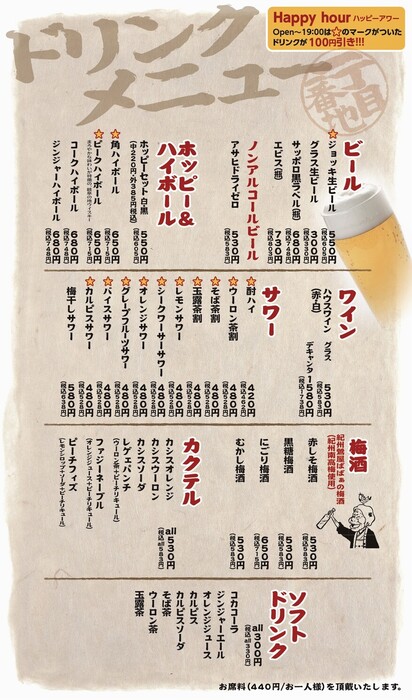 ドリンク
メニュー
一丁目
一番地
Happy hour ハッピーアワー
Open〜19:00は☆のマークがついた
ドリンクが100円引き!!!
ビール
☆ジョッキ生ビール
グラス生ビール 300円
サッポロ黒ラベル(瓶) 680円
エビス(瓶) 730円
ノンアルコールビール
アサヒドライゼロ 530円 (税込583円)
ホッピー&
ハイボール
ホッピーセット 白・黒 550円 (税込605円)
(中220円・外385円税込)
☆角ハイボール 650円 (税込715円)
☆ピークハイボール 650円 (税込715円)
コークハイボール 680円 (税込748円)
ジンジャーハイボール 680円 (税込748円)
ワイン
ハウスワイン グラス 530円 (税込583円)
(赤・白) デキャンタ 1580円 (税込1738円)
サワー
☆酎ハイ 420円 (税込462円)
☆ウーロン茶割 480円 (税込528円)
☆そば茶割 480円 (税込528円)
☆玉露茶割 480円 (税込528円)
☆レモンサワー 480円 (税込528円)
☆シークワーサーサワー 480円 (税込528円)
☆オレンジサワー 480円 (税込528円)
☆グレープフルーツサワー 480円 (税込528円)
☆バイスサワー 480円 (税込528円)
☆カルピスサワー 480円 (税込528円)
梅干しサワー 580円 (税込638円)
梅酒
紀州鶯屋ばばぁの梅酒
(紀州南高梅使用)
赤しそ梅酒 530円 (税込583円)
黒糖梅酒 530円 (税込583円)
にごり梅酒 650円 (税込715円)
むかし梅酒 530円 (税込583円)
カクテル
all 530円 (税込all 583円)
カシスオレンジ
カシスウーロン
カシスソーダ
レゲエパンチ
(ウーロン茶+ピーチリキュール)
ファジーネーブル
(オレンジジュース+ピーチリキュール)
ピーチフィズ
(レモンシロップ+ソーダ+ピーチリキュール)
ソフト
ドリンク
all 300円 (税込all 330円)
コカコーラ
ジンジャーエール
オレンジジュース
カルピス
カルピスソーダ
そば茶
ウーロン茶
玉露茶
お席料(440円/お一人様)を頂戴いたします。